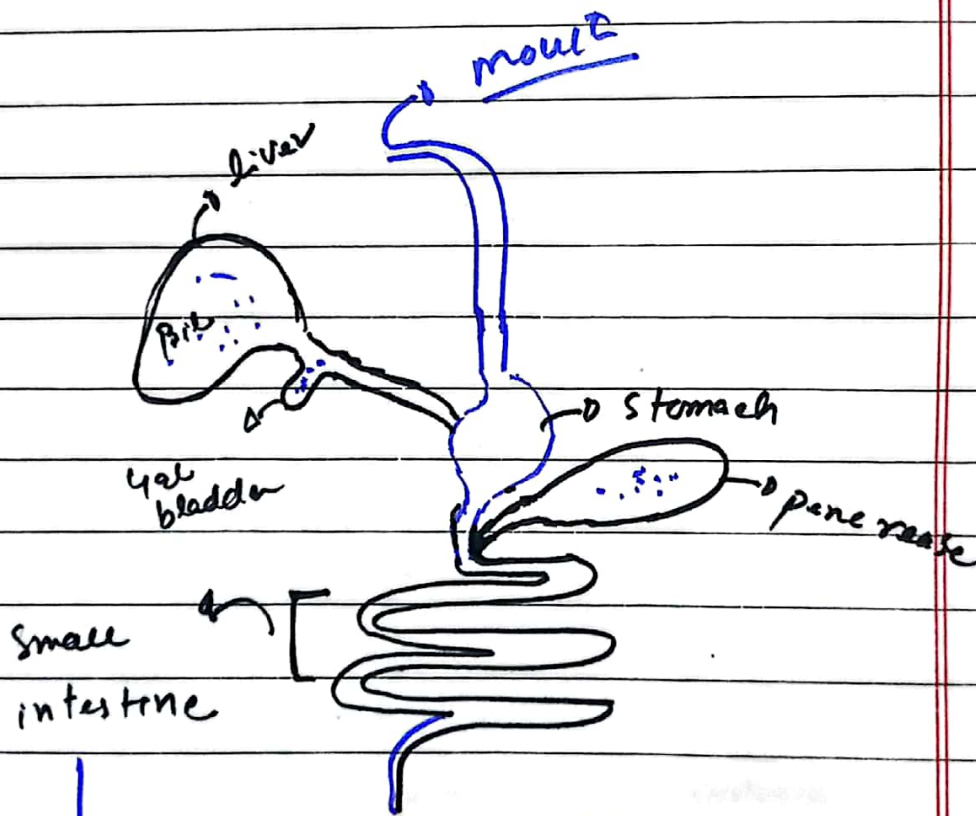 mouth
liver
Bile
stomach
Gal
bladder
pancrease
small
intestine